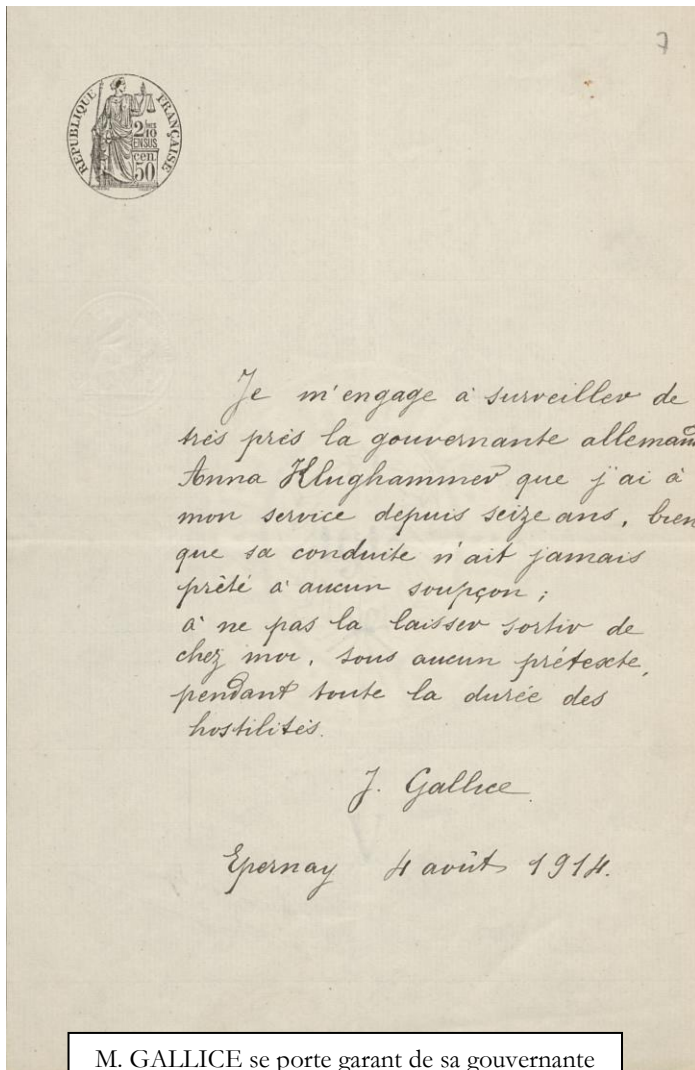 7
RÉPUBLIQUE FRANÇAISE
2/10
EN SUS
cen.
50
Je m'engage à surveiller de
très près la gouvernante alleman
Anna Klughammer que j'ai à
mon service depuis seize ans, bien
que sa conduite n'ait jamais
prêté à aucun soupçon ;
à ne pas la laisser sortir de
chez moi, sous aucun prétexte,
pendant toute la durée des
hostilités.
J. Gallice.
Epernay 4 août 1914.
M. GALLICE se porte garant de sa gouvernante